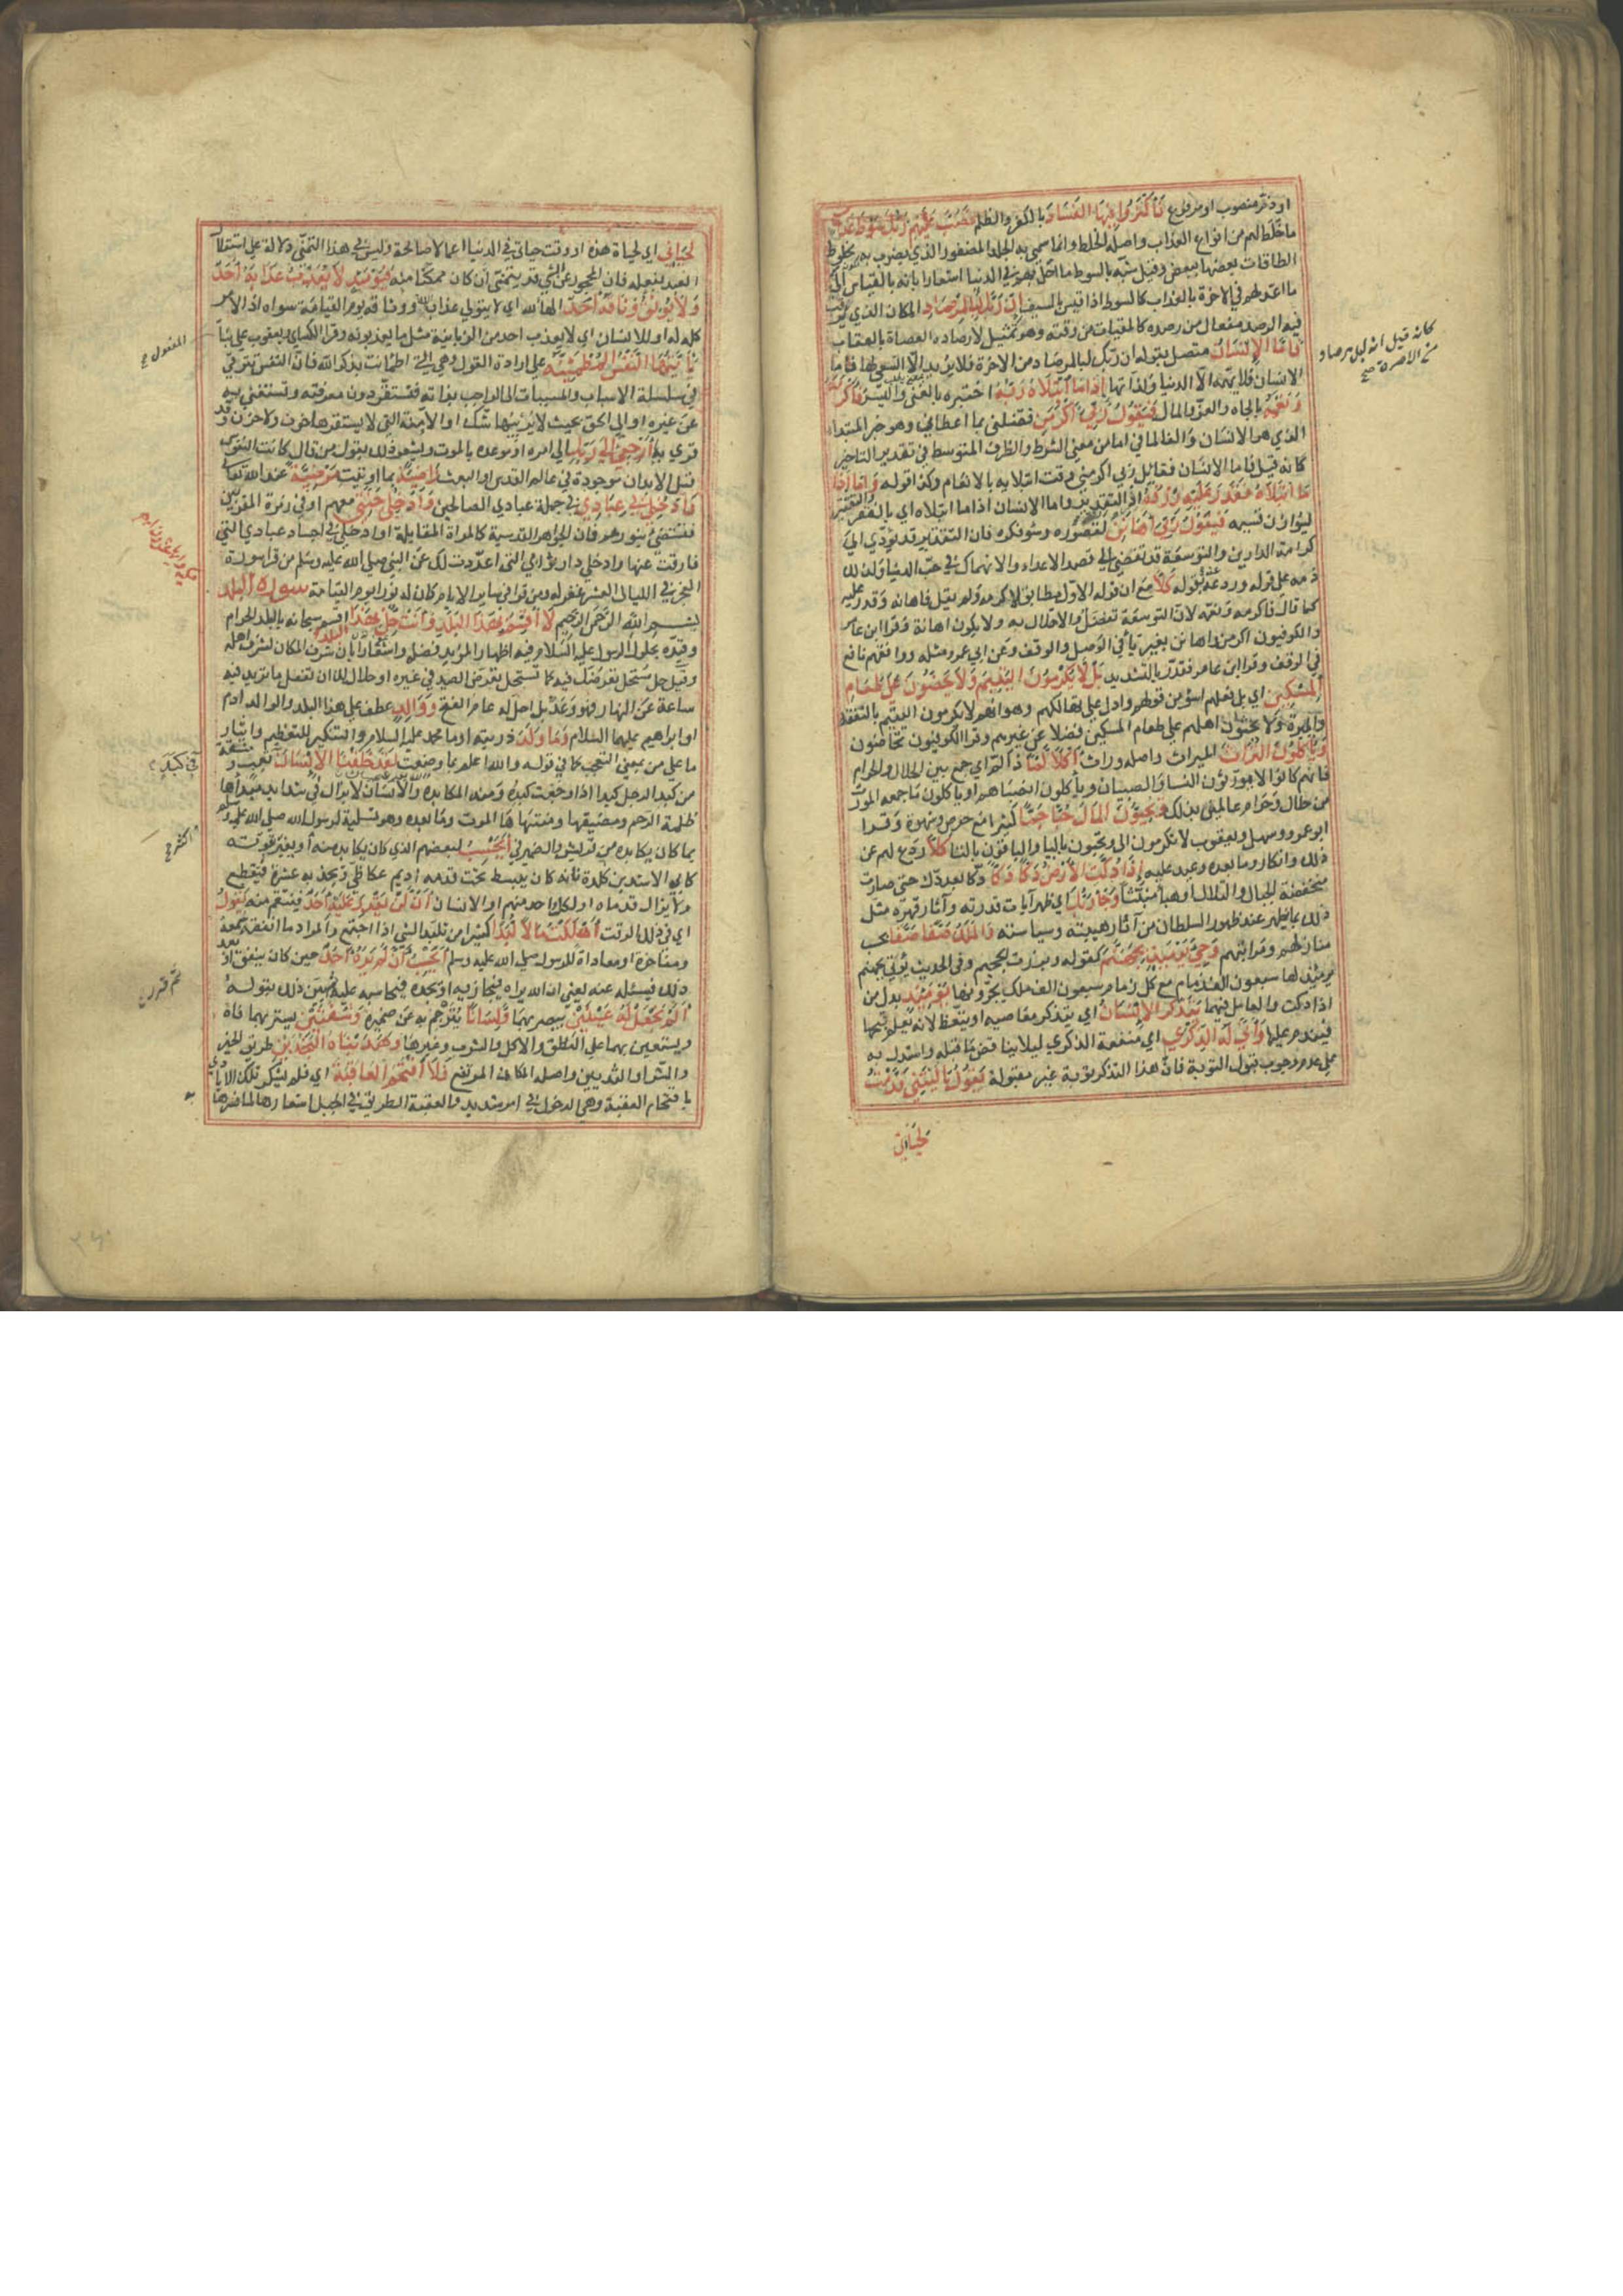 او ذم منصوب او مرفوع فَأَكْثَرُوا فِيهَا الْفَسَادَ بالكفر والظلم فَصَبَّ عَلَيْهِمْ رَبُّكَ سَوْطَ عَذَابٍ
ما خلط لهم من انواع العذاب واصله الخلط وانما سمي به الجلد المضفور الذي يضرب به لكونه مخلوط
الطاقات بعضها ببعض وقيل شبه بالسوط ما احل بهم في الدنيا اشعارا بانه بالقياس الى
ما اعد لهم في الاخرة بالعذاب كالسوط اذا قيس بالسيف إِنَّ رَبَّكَ لَبِالْمِرْصَادِ المكان الذي يترقب
فيه الرصد مفعال من رصده كالميقات من وقته وهو تمثيل لارصاده العصاة بالعقاب
فَأَمَّا الْإِنْسَانُ متصل بقوله ان ربك لبالمرصاد من الاخرة فلا يريد الا السعي لها فاما
الانسان فلا يهمه الا الدنيا ولذاتها إِذَا مَا ابْتَلَاهُ رَبُّهُ اختبره بالغنى واليسر فَأَكْرَمَهُ
وَنَعَّمَهُ بالجاه والمال فَيَقُولُ رَبِّي أَكْرَمَنِ فضلني بما اعطاني وهو خبر المبتدا
الذي هو الانسان والفا لما في اما من معنى الشرط والظرف المتوسط في تقدير التاخير
كانه قيل فاما الانسان فقايل ربي اكرمني وقت ابتلايه بالانعام وكذا قوله وَأَمَّا إِذَا
مَا ابْتَلَاهُ فَقَدَرَ عَلَيْهِ رِزْقَهُ اذ التقدير واما الانسان اذا ما ابتلاه اي بالفقر والتقتير
ليوازن قسيمه فَيَقُولُ رَبِّي أَهَانَنِ لقصوره وسوء فكره فان التقتير قد يؤدي الى
كرامة الدارين والتوسعة قد تفضي الى قصد الاعداء والانهماك في حب الدنيا ولذلك
ذمه على قوليه وردعه عنه بقوله كَلَّا مع ان قوله الاول مطابق لاكرمه ولم يقل فاهانه وقدر عليه
كما قال فاكرمه ونعمه لان التوسعة تفضل والاخلال به لا يكون اهانة وقرا ابن عامر
والكوفيون اكرمن واهانن بغير يا في الوصل والوقف وعن ابي عمرو مثله ووافقهم نافع
في الوقف وقرا ابن عامر فقدر بالتشديد بَلْ لَا يُكْرِمُونَ الْيَتِيمَ وَلَا يَحُضُّونَ عَلَى طَعَامِ
الْمِسْكِينِ اي بل فعلهم اسوأ من قولهم وادل على تهالكهم وهو انهم لا يكرمون اليتيم بالنفقة
والمبرة ولا يحثون اهلهم على طعام المسكين فضلا عن غيرهم وقرا الكوفيون تحاضون
وَيَأْكُلُونَ التُّرَاثَ الميراث واصله وراث أَكْلًا لَمًّا ذا لم اي جمع بين الحلال والحرام
فانهم كانوا لا يورثون النسا والصبيان وياكلون انصباهم او ياكلون ما جمعه المورث
من حلال وحرام عالمين بذلك وَيُحِبُّونَ الْمَالَ حُبًّا جَمًّا كثيرا مع حرص وشهوة وقرا
ابو عمرو وسهل ويعقوب لا يكرمون الى ويحبون باليا والباقون بالتا كَلَّا ردع لهم عن
ذلك وانكار وما بعده وعيد عليه إِذَا دُكَّتِ الْأَرْضُ دَكًّا دَكًّا دكا بعد دك حتى صارت
منخفضة الجبال والتلال او هباء منبثا وَجَاءَ رَبُّكَ اي ظهر آيات قدرته وآثار قهره مثل
ذلك بما يظهر عند ظهور السلطان من آثار هيبته وسياسته وَالْمَلَكُ صَفًّا صَفًّا بحسب
منازلهم ومراتبهم وَجِيءَ يَوْمَئِذٍ بِجَهَنَّمَ كقوله وبرزت الجحيم وفي الحديث يؤتى بجهنم
يومئذ لها سبعون الف زمام مع كل زمام سبعون الف ملك يجرونها يَوْمَئِذٍ بدل من
اذا دكت والعامل فيهما يَتَذَكَّرُ الْإِنْسَانُ اي يتذكر معاصيه او يتعظ لانه يعلم قبحها
فيندم عليها وَأَنَّى لَهُ الذِّكْرَى اي منفعة الذكرى ليلا يناقض ما قبله واستدل به
على عدم وجوب قبول التوبة فان هذا التذكر توبة غير مقبولة يَقُولُ يَا لَيْتَنِي قَدَّمْتُ
لحياتي
كانه قيل انه لبالمرصاد
من الاخرة صح
لِحَيَاتِي اي لحياة هذه او وقت حياتي في الدنيا اعمالا صالحة وليس في هذا التمني دلالة على استقلال
العبد بفعله فان المحجور عن الشي قد يتمنى ان كان ممكنا منه فَيَوْمَئِذٍ لَا يُعَذِّبُ عَذَابَهُ أَحَدٌ
وَلَا يُوثِقُ وَثَاقَهُ أَحَدٌ الها لله اي لا يتولى عذاب الله ووثاقه يوم القيامة سواه اذ الامر
كله له او للانسان اي لا يعذب احد من الزبانية مثل ما يعذبونه وقرا الكسائي ويعقوب على بنا
يَا أَيَّتُهَا النَّفْسُ الْمُطْمَئِنَّةُ على ارادة القول وهي التي اطمانت بذكر الله فان النفس تترقى
في سلسلة الاسباب والمسببات الى الواجب بذاته فتستقر دون معرفته وتستغني به
عن غيره او الى الحق بحيث لا يريبها شك او الآمنة التي لا يستفزها خوف ولا حزن وقد
قري بها ارْجِعِي إِلَى رَبِّكِ الى امره او موعده بالموت ويشعر ذلك بقول من قال كانت النفوس
قبل الابدان موجودة في عالم القدس او بالبعث رَاضِيَةً بما اوتيت مَرْضِيَّةً عند الله تعالى
فَادْخُلِي فِي عِبَادِي في جملة عبادي الصالحين وَادْخُلِي جَنَّتِي معهم او في زمرة المقربين
فتستضيء بنورهم فان الجواهر القدسية كالمرايا المتقابلة او ادخلي في اجساد عبادي التي
فارقت عنها وادخلي دار ثوابي التي اعددت لك عن النبي صلى الله عليه وسلم من قرا سورة
الفجر في الليالي العشر غفر له ومن قراها في ساير الايام كان له نورا يوم القيامة سورة البلد
بسم الله الرحمن الرحيم لَا أُقْسِمُ بِهَذَا الْبَلَدِ وَأَنْتَ حِلٌّ بِهَذَا البلد اقسم سبحانه بالبلد الحرام
وقيده بحلول الرسول عليه السلام فيه اظهارا لمزيد فضله واشعارا بان شرف المكان لشرف اهله
وقيل حل مستحل تعرضك فيه كما تستحل تعرض الصيد في غيره او حلال لك ان تفعل ما تريد فيه
ساعة عن النهار فهو وعد بما احل له عام الفتح وَوَالِدٍ عطف على هذا البلد والوالد ادم
او ابراهيم عليهما السلام وَمَا وَلَدَ ذريته او محمد عليه السلام والتنكير للتعظيم وايثار
ما على من بمعنى التعجب كما في قوله والله اعلم بما وضعت لَقَدْ خَلَقْنَا الْإِنْسَانَ تعب ومشقة
من كبد الرجل كبدا اذا وجعت كبده ومنه المكابدة والانسان لا يزال في شدايد مبداها
ظلمة الرحم ومضيقها ومنتهاها الموت وما بعده وهو تسلية لرسول الله صلى الله عليه وسلم
بما كان يكابده من قريش والضمير في أَيَحْسَبُ لبعضهم الذي كان يكابد منه او يغتر بقوته
كابي الاشد بن كلدة فانه كان يبسط تحت قدمه اديم عكاظي ويجذبه عشرة فينقطع
ولا يزال قدماه او لكل احد منهم او الانسان أَنْ لَنْ يَقْدِرَ عَلَيْهِ أَحَدٌ فينتقم منه يَقُولُ
اي في ذلك الوقت أَهْلَكْتُ مَالًا لُبَدًا كثيرا من تلبد الشي اذا اجتمع والمراد ما انفقه سمعة
ومفاخرة او معاداة للرسول صلى الله عليه وسلم أَيَحْسَبُ أَنْ لَمْ يَرَهُ أَحَدٌ حين كان ينفق او بعد
ذلك فيسئله عنه يعني ان الله يراه فيجازيه او يجده فيحاسبه عليه ثم بين ذلك بقوله
أَلَمْ نَجْعَلْ لَهُ عَيْنَيْنِ يبصر بهما وَلِسَانًا يترجم به عن ضميره وَشَفَتَيْنِ يستر بهما فاه
ويستعين بهما على النطق والاكل والشرب وغيرها وَهَدَيْنَاهُ النَّجْدَيْنِ طريق الخير
والشر او الثديين واصله المكان المرتفع فَلَا اقْتَحَمَ الْعَقَبَةَ اي فلم يشكر تلك الايادي
باقتحام العقبة وهي الدخول في امر شديد والعقبة الطريق في الجبل استعارها لما فسرها
المفعول صح
في كبد
اكثر صح
ثم قرر